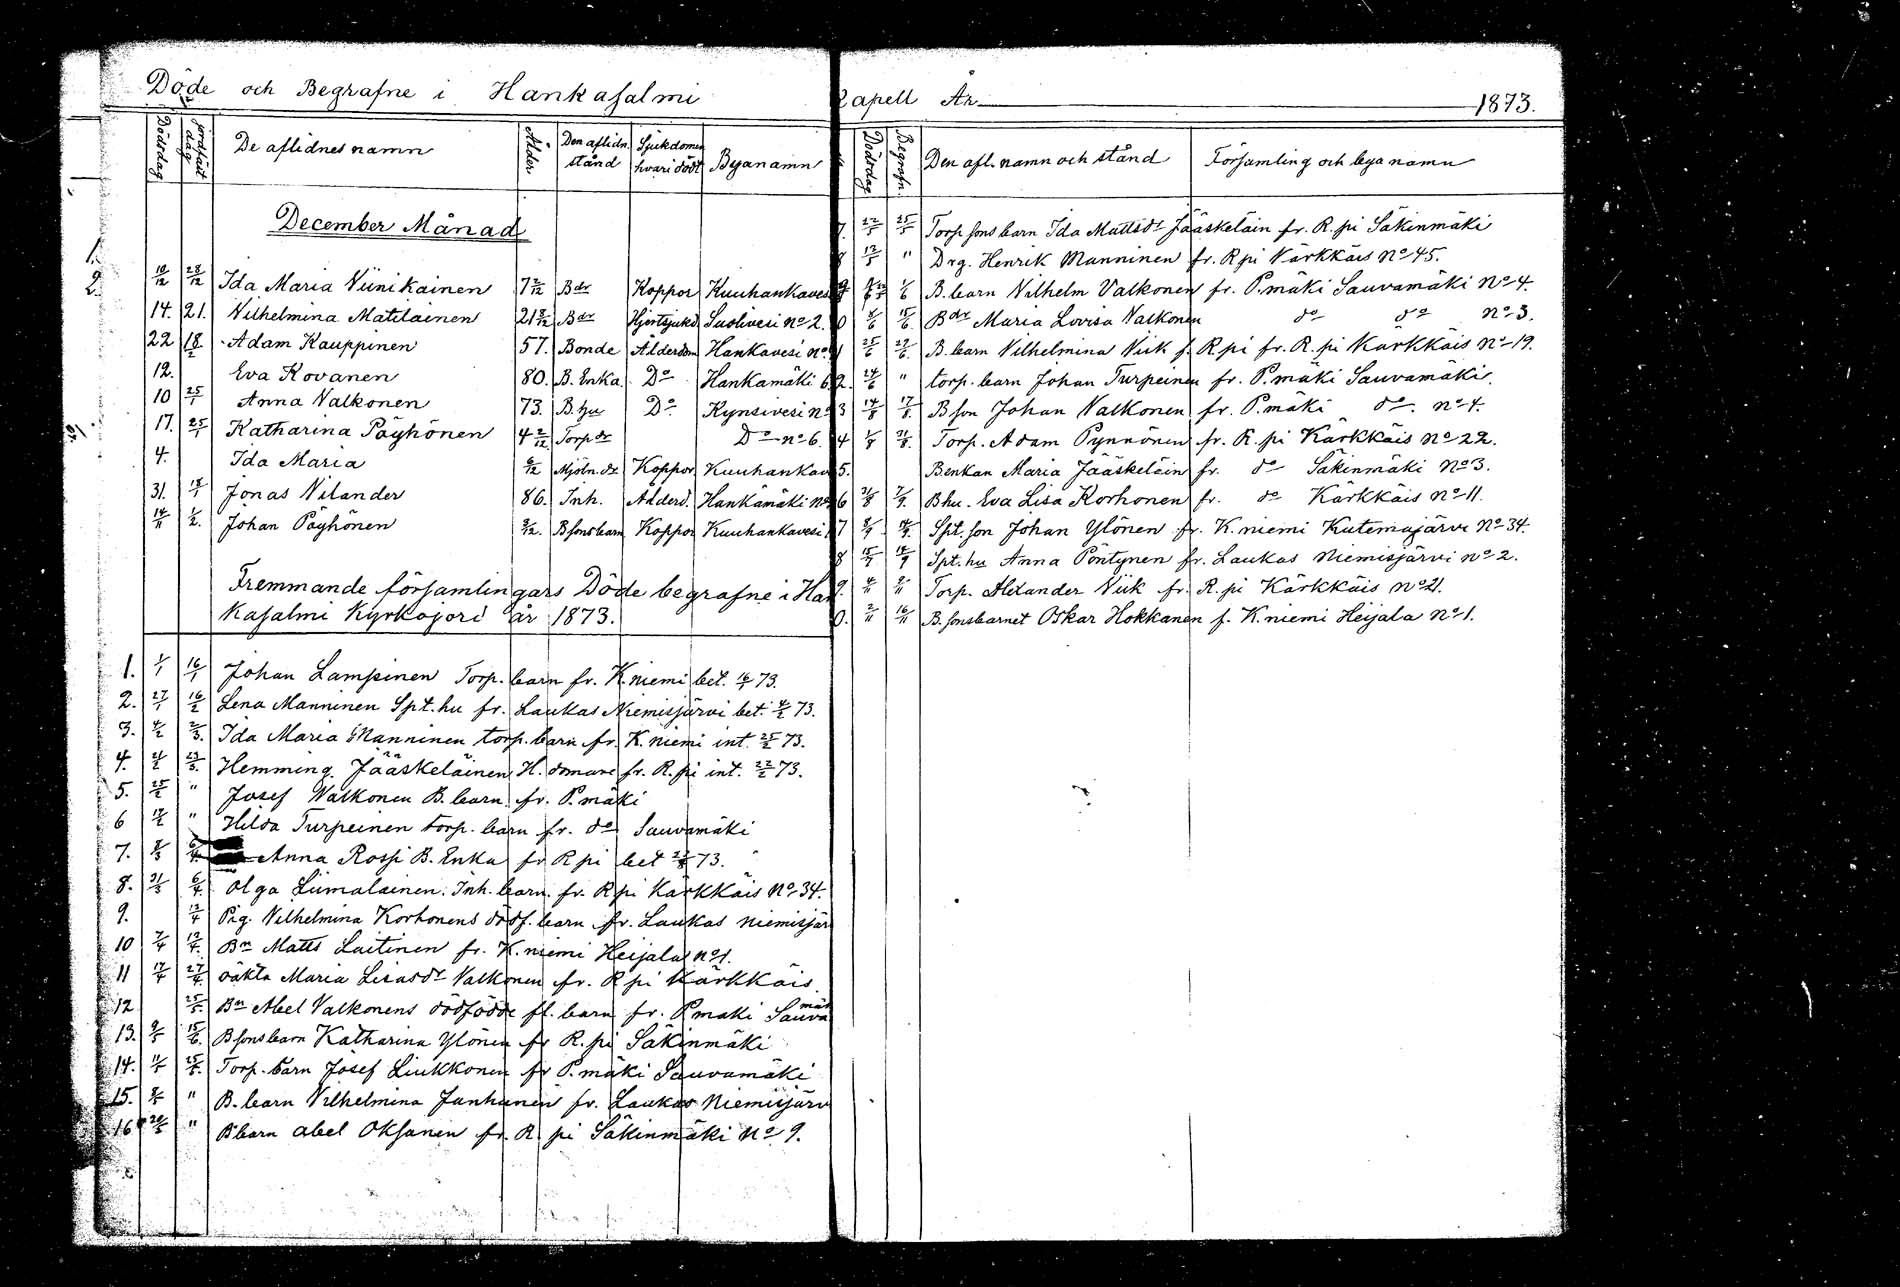 Döde och Begrafne i Hankasalmi
Dödsdag Jordfäst dag De aflidnes namn Ålder Den aflidn. stånd Sjukdomen hvari dödt Byanamn
December Månad
10/12 28/12 Ida Maria Viinikainen 7 2/12 Bdr Koppor Kuuhankaves
14. 21. Vilhelmina Matilainen 21 8/12 Bdr Hjertsjukd. Suolivesi No 2.
22 18/2 Adam Kauppinen 57. Bonde Ålderdom Hankavesi No
12. Eva Kovanen 80. B. Enka Do Hankamäki 6
10 25/1 Anna Valkonen 73. B. hu Do Kynsivesi No
17. 25/1 Katharina Päyhönen 4 2/12 Torp dr Do No 6.
4. Ida Maria 6/12 Mjöln. dr Koppor Kuuhankav
31. 18/1 Jonas Vilander 86. Inh. Ålderd. Hankamäki No
14/11 1/2. Johan Päyhönen 3/12. B sons barn Koppor Kuuhankavesi
Fremmande församlingars Döde begrafne i Han
kasalmi Kyrkojord år 1873.
1. 1/1 16/1 Johan Lampinen Torp. barn fr. K. niemi bet. 16/1 73.
2. 27/1 16/2 Lena Manninen Spt. hu fr. Laukas Niemisjärvi bet. 4/2 73.
3. 4/2 2/3. Ida Maria Manninen torp. barn fr. K. niemi int. 25/2 73.
4. 23/3. Hemming Jääskeläinen H. domare fr. R. pi int. 22/2 73.
5. 25/2 " Josef Valkonen B. barn fr. P. mäki
6 " Hilda Turpeinen torp. barn fr. do Sauvamäki
7. 8/3 6/4. Anna Rossi B. Enka fr R pi bet 73.
8. 31/3 6/4. Olga Liimalainen. Inh. barn. fr. R pi Kärkkäis No 34.
9. 13/4 Pig. Vilhelmina Korhonens dödf. barn fr. Laukas Niemisjär
10 7/4 13/4. Bn Matts Laitinen fr. K. niemi Heijala No 1.
11 17/4 27/4. oäkta Maria Lisasdr Valkonen fr. R pi Kärkkäis
12 25/5. Bn Abel Valkonens dödfödde fl. barn fr. P maki Sauva mäk
13. 9/5 15/6. B sons barn Katharina Ylönen fr R. pi Säkinmäki
14. 11/5 25/5. Torp. barn Josef Liukkonen fr P. mäki Sauvamäki
15. " B. barn Vilhelmina Janhunen fr. Laukas Niemisjärv
16 20/5 " B barn Abel Oksanen fr. R pi Säkinmäki No 9.
Capell År 1873.
Dödsdag Begrafn. Den afl. namn och stånd Församling och bya namn
7. 22/5 25/5 Torp sons barn Ida Mattsdr Jääskeläin fr. R. pi Säkinmäki
8 13/5 " Drg. Henrik Manninen fr. R pi Kärkkäis No 45.
9 1/6 B. barn Vilhelm Valkonen fr. P. mäki Sauvamäki No 4.
0 15/6. Bdr Maria Lovisa Valkonen do do No 3.
1 25/6 29/6. B. barn Vilhelmina Viik f. R pi fr. R. pi Kärkkäis No 19.
2. 24/6 " torp. barn Johan Turpeinen fr. P. mäki Sauvamäki.
3 14/8 17/8. B son Johan Valkonen fr. P. mäki do. No 4.
4 1/8 31/8. Torp. Adam Pynnönen fr. R. pi Kärkkäis No 22.
5. B. enkan Maria Jääskeläin fr. do Säkinmäki No 3.
6 31/8 7/9. B hu. Eva Lisa Korhonen fr. do Kärkkäis No 11.
7 8/9 14/9. Spt. son Johan Ylönen fr. K. niemi Kutemajärvi No 34.
8 15/9 18/9 Spt. hu Anna Pöntynen fr. Laukas Niemisjärvi No 2.
9. 4/11 9/11 Torp. Alexander Viik fr. R. pi Kärkkäis No 21.
0. 2/11 16/11 B. sonsbarnet Oskar Hokkanen f. K. niemi Heijala No 1.